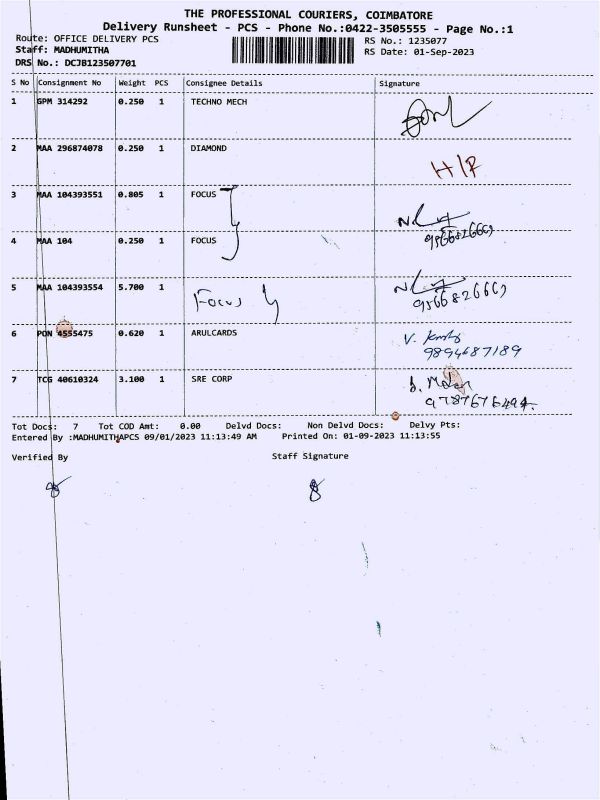 THE PROFESSIONAL COURIERS, COIMBATORE
Delivery Runsheet - PCS - Phone No.:0422-3505555 - Page No.:1
Route: OFFICE DELIVERY PCS RS No.: 1235077
Staff: MADHUMITHA RS Date: 01-Sep-2023
DRS No.: DCJB123507701
S No Consignment No Weight PCS Consignee Details Signature
1 GPM 314292 0.250 1 TECHNO MECH
2 MAA 296874078 0.250 1 DIAMOND H/R
3 MAA 104393551 0.805 1 FOCUS
4 MAA 104 0.250 1 FOCUS
5 MAA 104393554 5.700 1 Focus
6 PON 4555475 0.620 1 ARULCARDS V.
9894687189
7 TCG 40610324 3.100 1 SRE CORP
Tot Docs: 7 Tot COD Amt: 0.00 Delvd Docs: Non Delvd Docs: Delvy Pts:
Entered By :MADHUMITHAPCS 09/01/2023 11:13:49 AM Printed On: 01-09-2023 11:13:55
Verified By Staff Signature